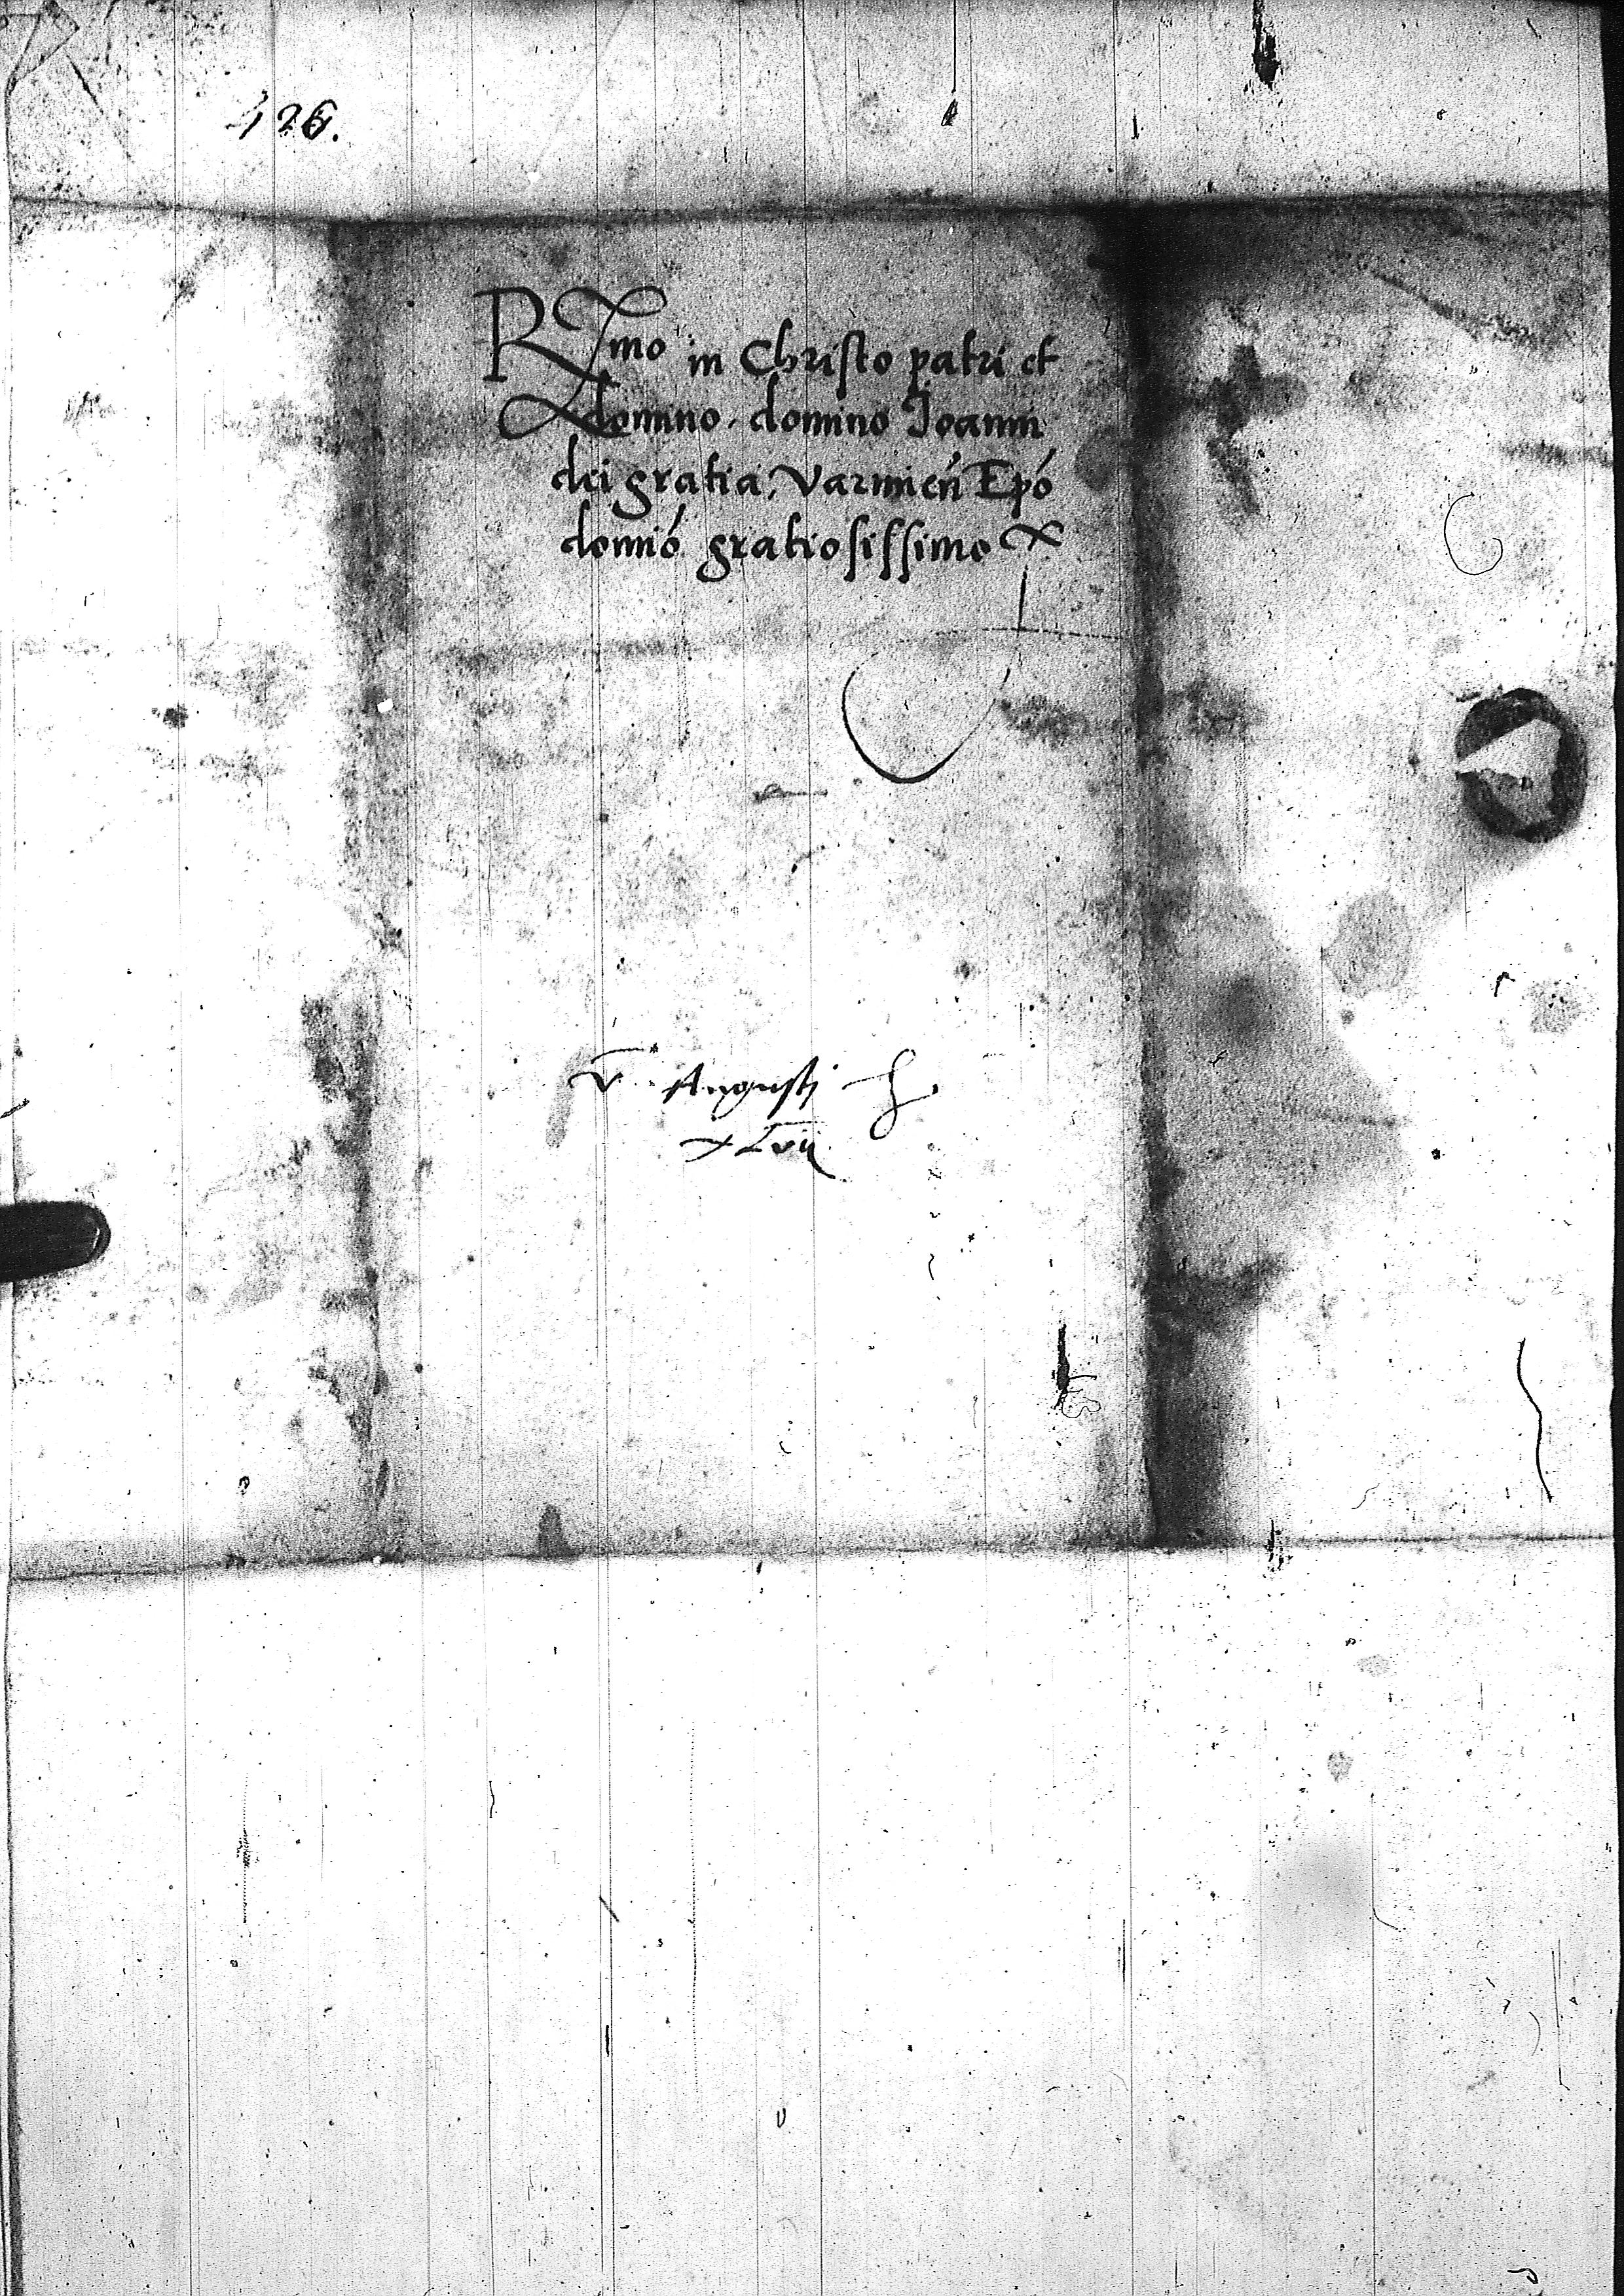 426.
Rmo in Christo patri et
domino, domino Joanni
dei gratia, Varmieñ Epõ
domiõ gratiosissimo
v Augusti
xLvij